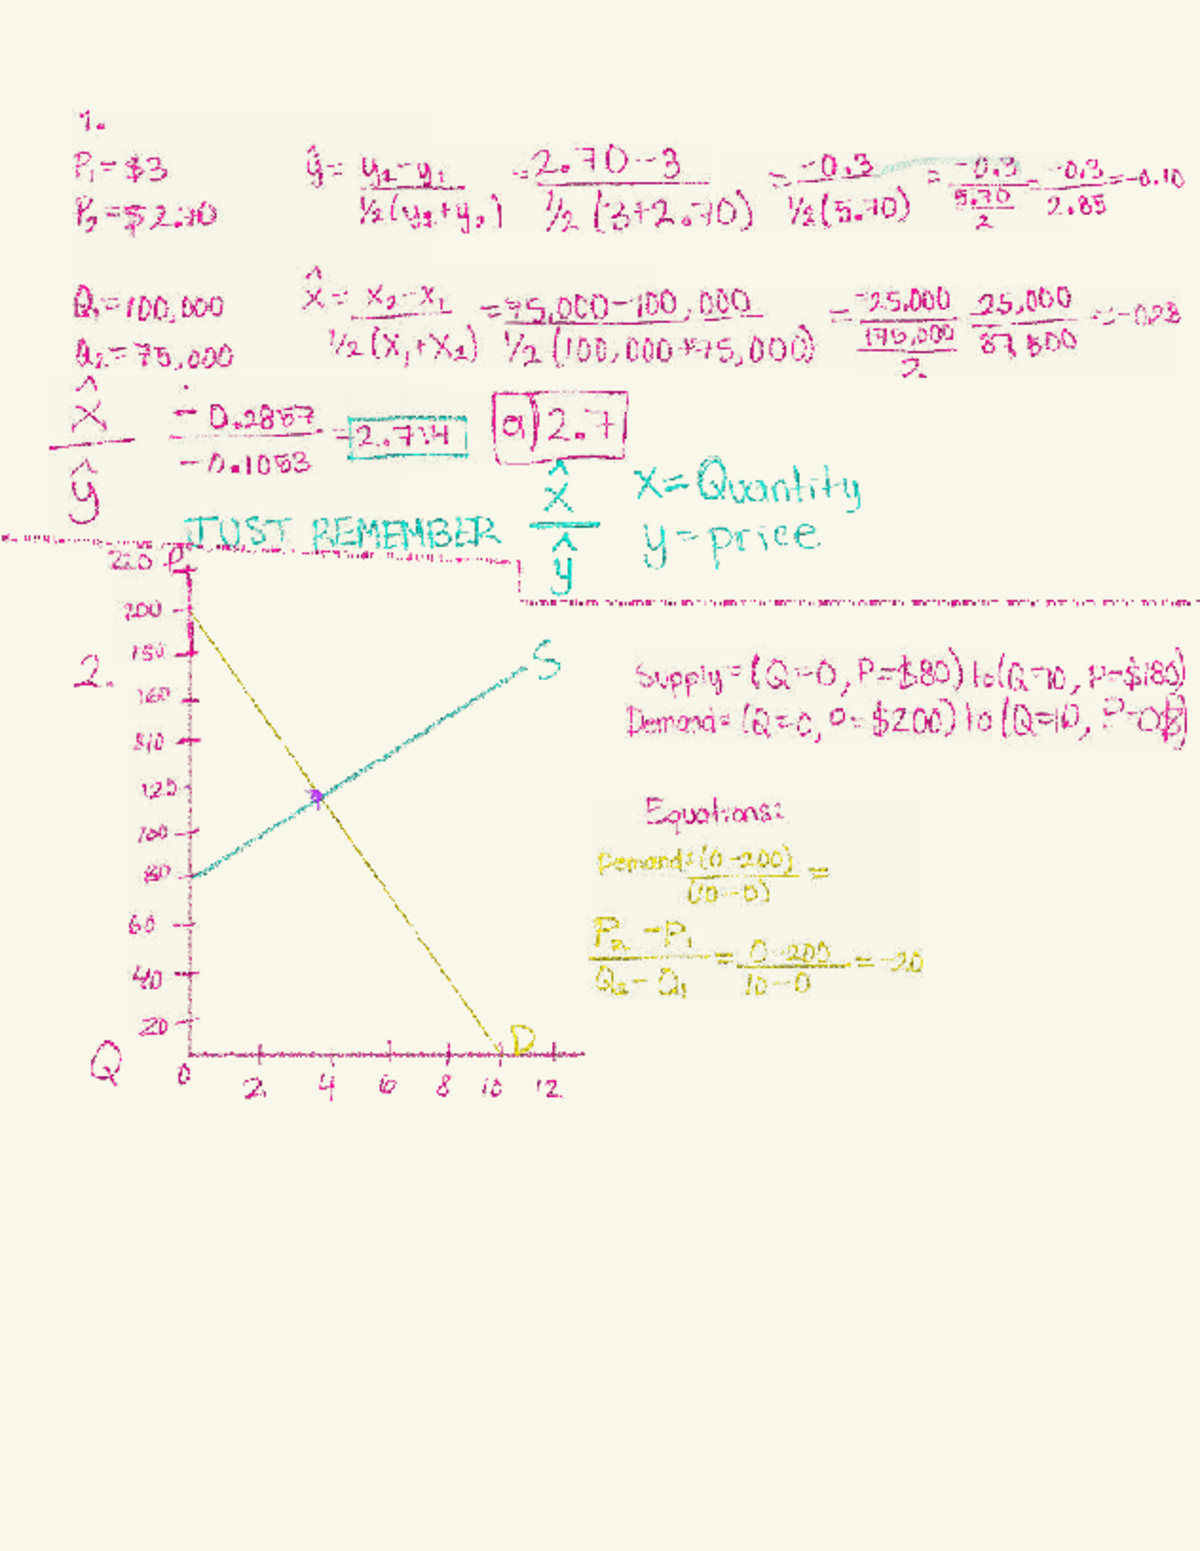 1.
P₁=$3
P₂=$2.70
ŷ= y₂-y₁ / ½(y₂+y₁) = 2.70-3 / ½(3+2.70) = -0.3 / ½(5.70) = -0.3 / 5.70/2 = -0.3 / 2.85 = -0.10
Q₁=100,000
Q₂=75,000
x̂= x₂-x₁ / ½(x₁+x₂) = 75,000-100,000 / ½(100,000+75,000) = -25,000 / 175,000/2 25,000 / 87,500 =-0.28
x̂ / ŷ -0.2857 / -0.1053 = 2.714 a) 2.7
JUST REMEMBER x̂ / ŷ
x=Quantity
y=price
2.
220 P
200
180
160
140
120
100
80
60
40
20
Q
0 2 4 6 8 10 12
S
D
Supply=(Q=0, P=$80) to (Q=10, P=$180)
Demand=(Q=0, P=$200) to (Q=10, P=0$)
Equations:
Demand: (0-200) / (10-0) =
P₂-P₁ / Q₂-Q₁ = 0-200 / 10-0 = -20